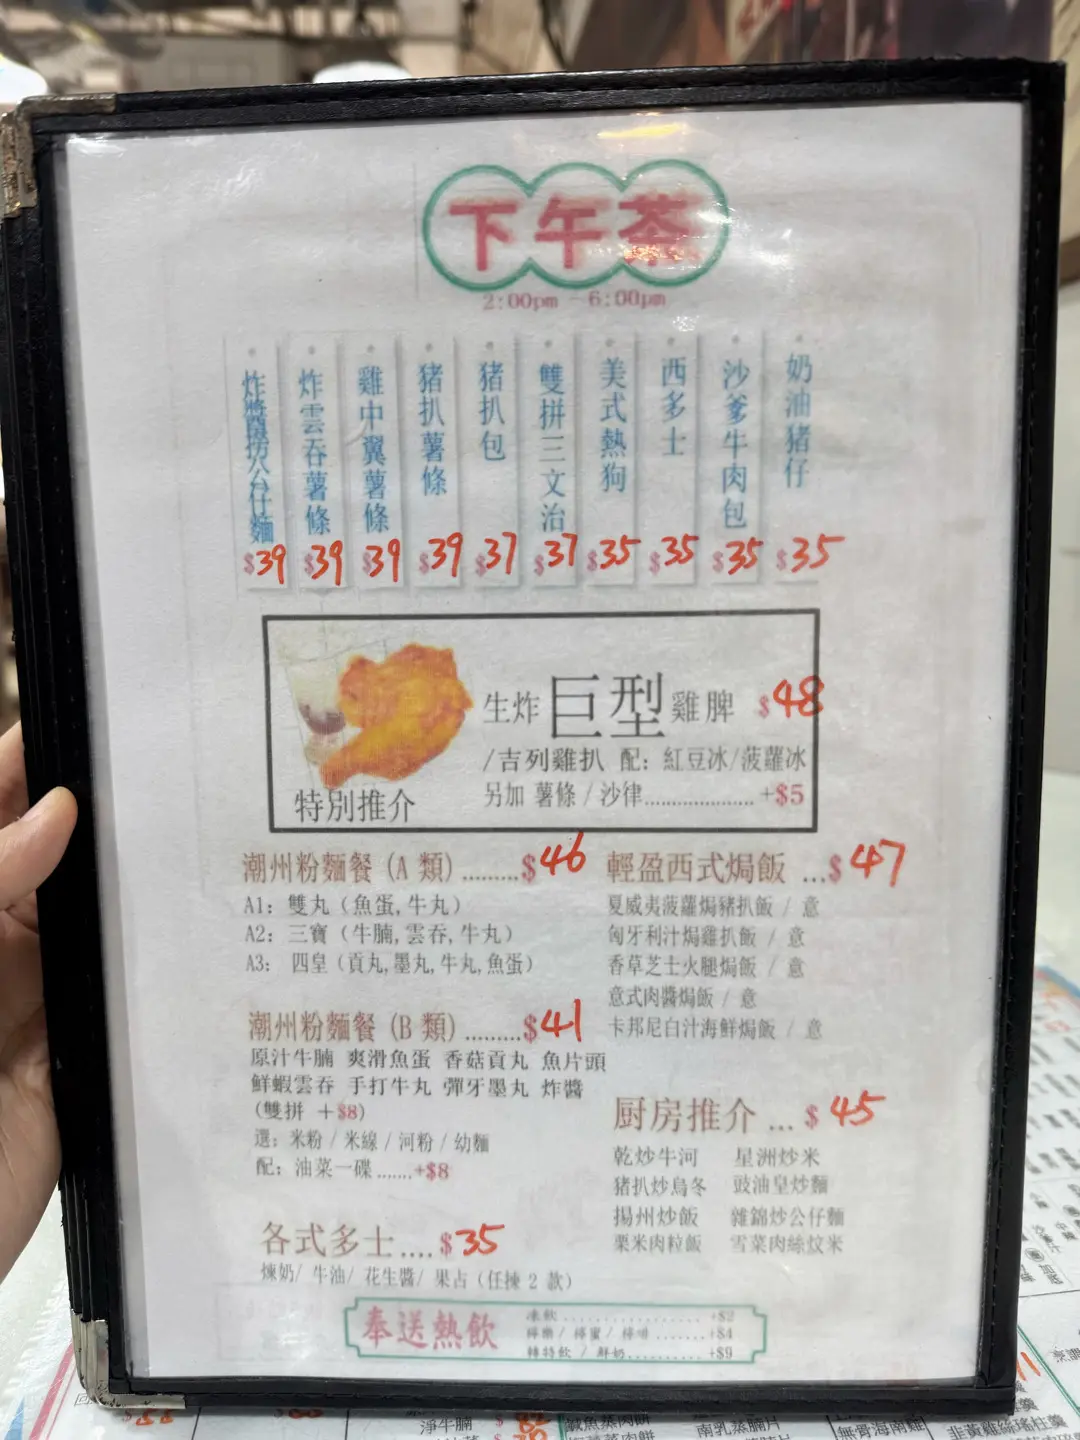 下午茶
2:00pm - 6:00pm
奶油豬仔 $35
沙爹牛肉包 $35
西多士 $35
美式熱狗 $35
雙拼三文治 $37
豬扒包 $37
豬扒薯條 $39
雞中翼薯條 $39
炸雲吞薯條 $39
炸醬撈公仔麵 $39
生炸巨型雞脾 $48
/吉列雞扒 配: 紅豆冰/菠蘿冰
另加 薯條/沙律....................+$5
特別推介
潮州粉麵餐(A 類).........$46
A1: 雙丸(魚蛋,牛丸)
A2: 三寶(牛腩,雲吞,牛丸)
A3: 四皇(貢丸,墨丸,牛丸,魚蛋)
潮州粉麵餐(B 類).........$41
原汁牛腩 爽滑魚蛋 香菇貢丸 魚片頭
鮮蝦雲吞 手打牛丸 彈牙墨丸 炸醬
(雙拼 +$8)
選: 米粉/米線/河粉/幼麵
配: 油菜一碟.......+$8
各式多士....$35
煉奶/牛油/花生醬/果占(任揀 2 款)
輕盈西式焗飯 ...$47
夏威夷菠蘿焗豬扒飯 / 意
匈牙利汁焗雞扒飯 / 意
香草芝士火腿焗飯 / 意
意式肉醬焗飯 / 意
卡邦尼白汁海鮮焗飯 / 意
厨房推介 ...$45
乾炒牛河 星洲炒米
豬扒炒烏冬 豉油皇炒麵
揚州炒飯 雜錦炒公仔麵
粟米肉粒飯 雪菜肉絲炆米
奉送熱飲
凍飲..................+$2
檸樂/檸蜜/檸啡.......+$4
轉特飲/鮮奶..........+$9
淨牛腩
鹹魚蒸肉餅
南乳蒸腩片
無骨海南雞
韭黃雞絲瑤柱羹